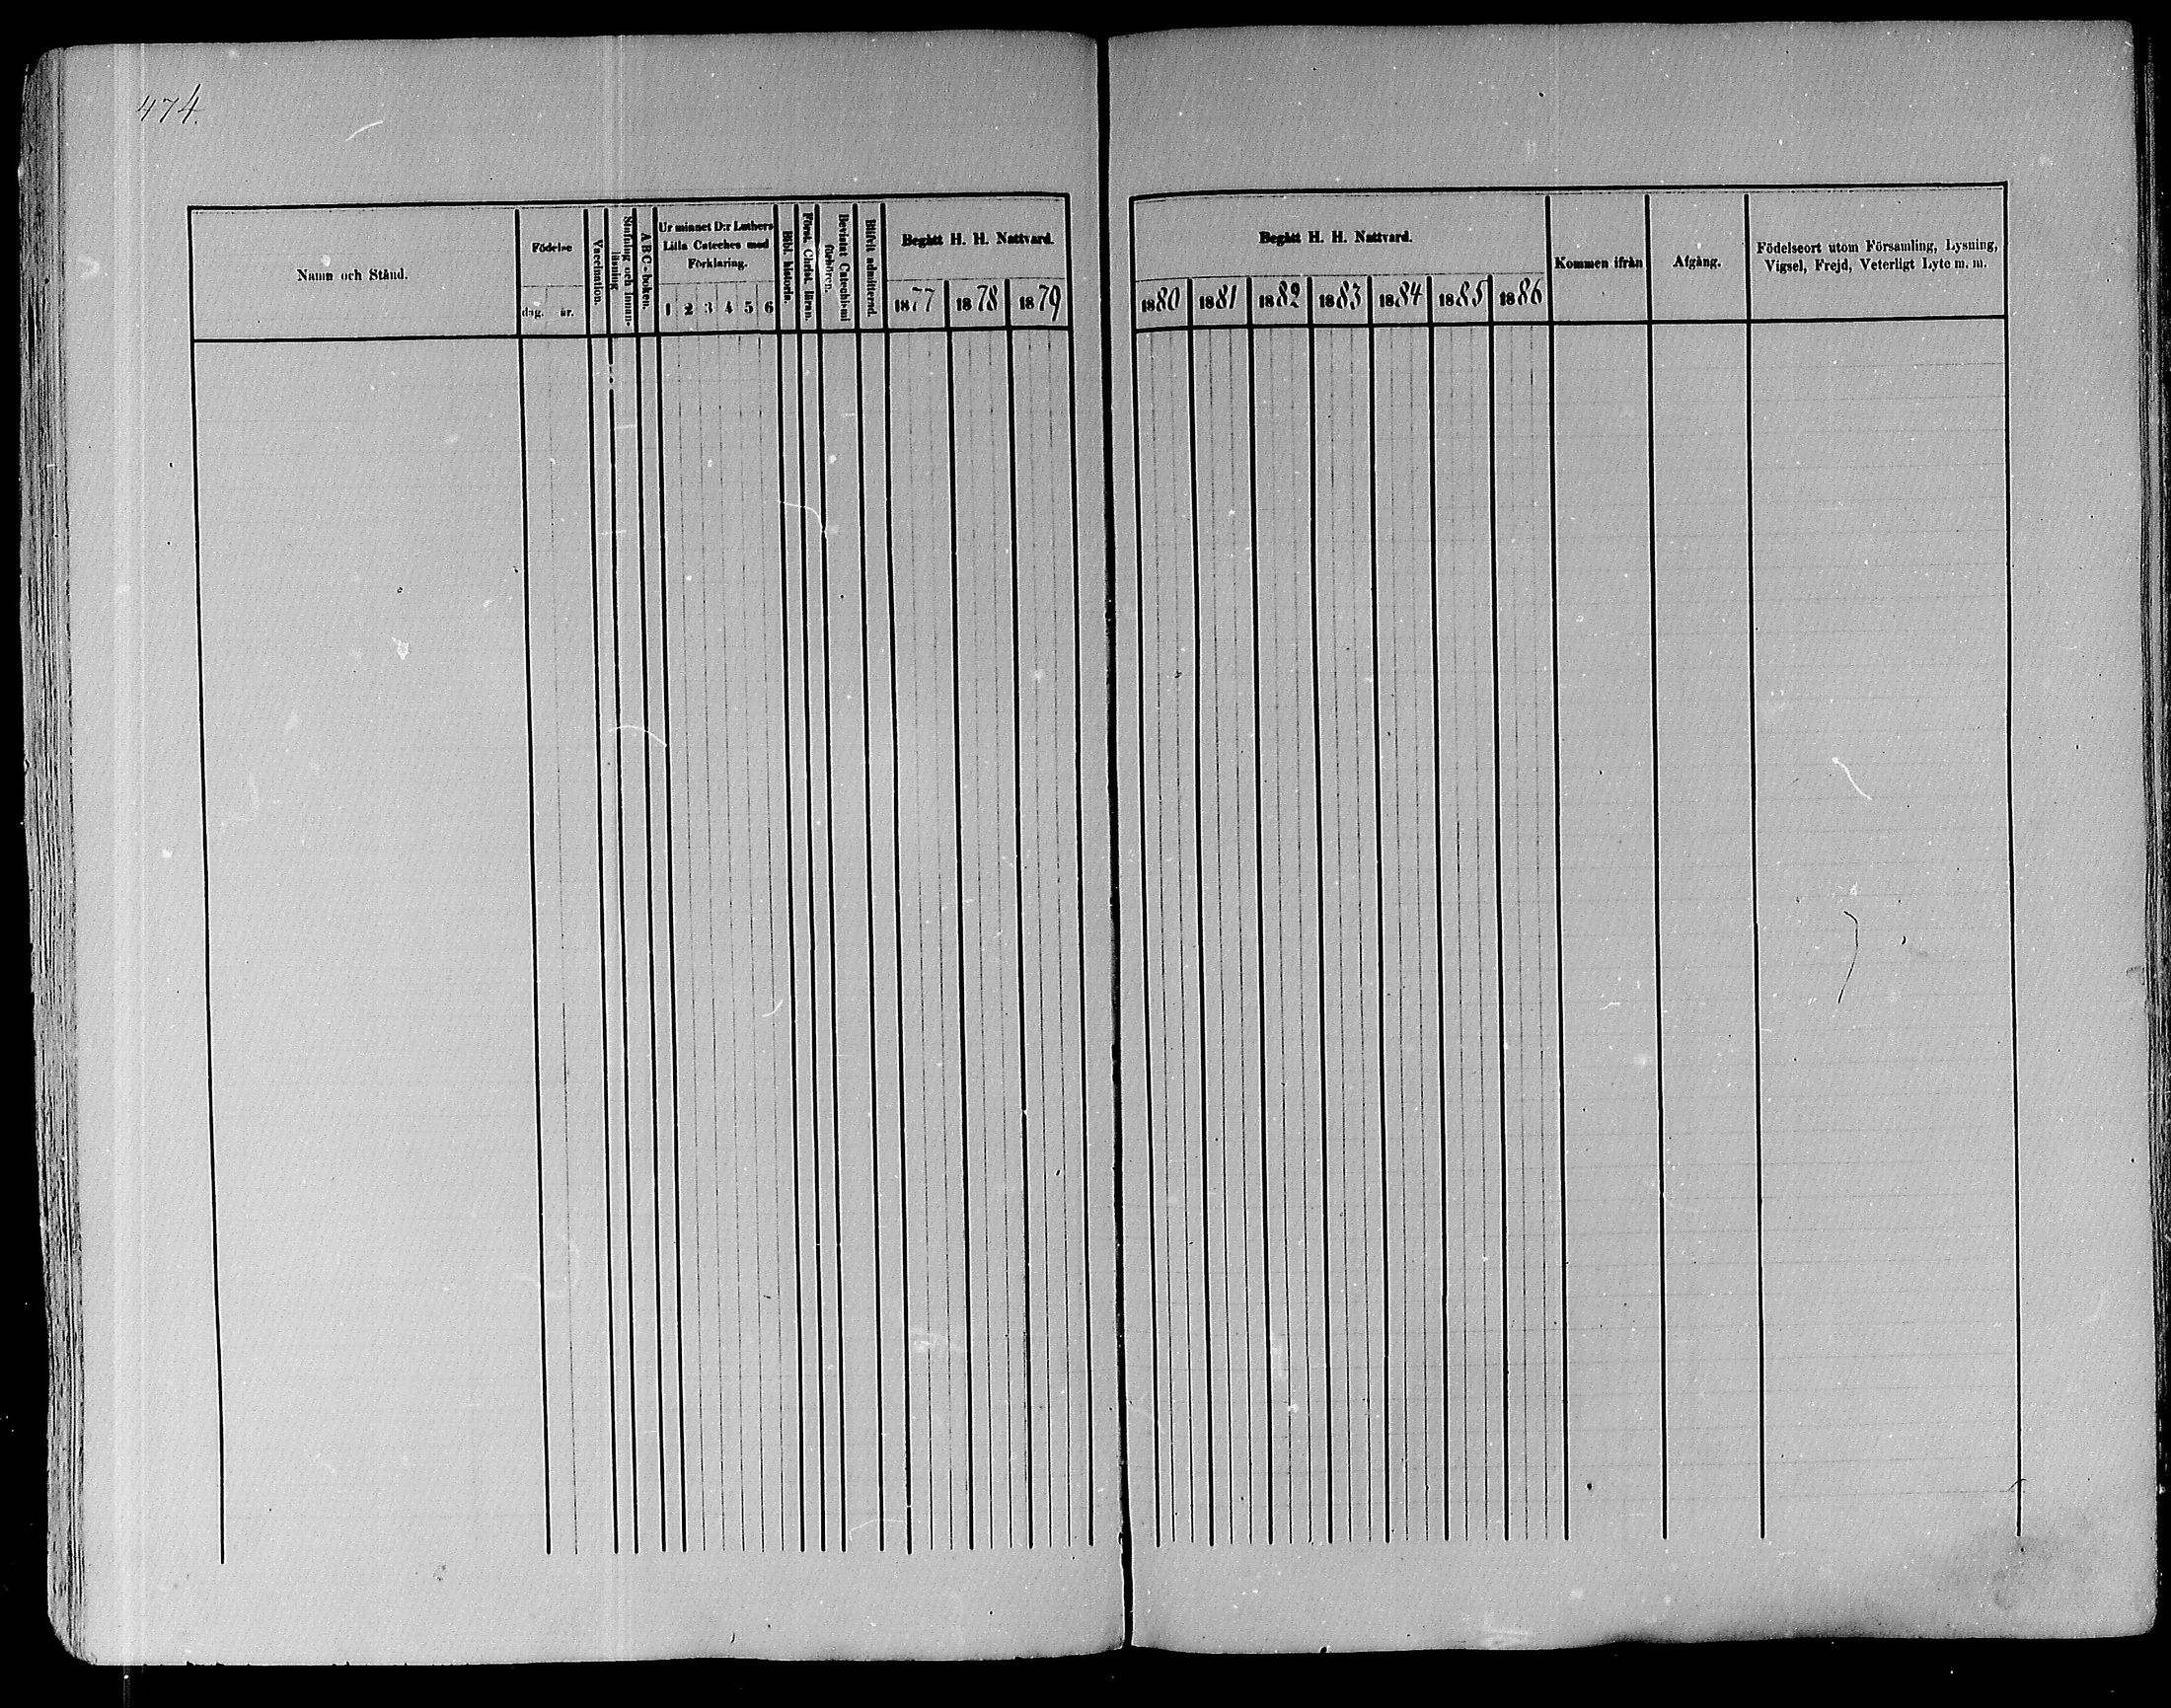 474.
Namn och Stånd.
Födelse
dag. år.
Vaccination.
Sinfoläg och innan-
läsning
A B C-boken.
Ur minnet D:r Luthers
Lilla Cateches med
Förklaring.
1 2 3 4 5 6
Bibl. historia.
Först. Christ. läran.
Bevistat Catechismi
förhören.
Blifvit admitterad.
Begått H. H. Nattvard.
1877 1878 1879
Begått H. H. Nattvard.
1880 1881 1882 1883 1884 1885 1886
Kommen ifrån
Afgång.
Födelseort utom Församling, Lysning,
Vigsel, Frejd, Veterligt Lyte m. m.